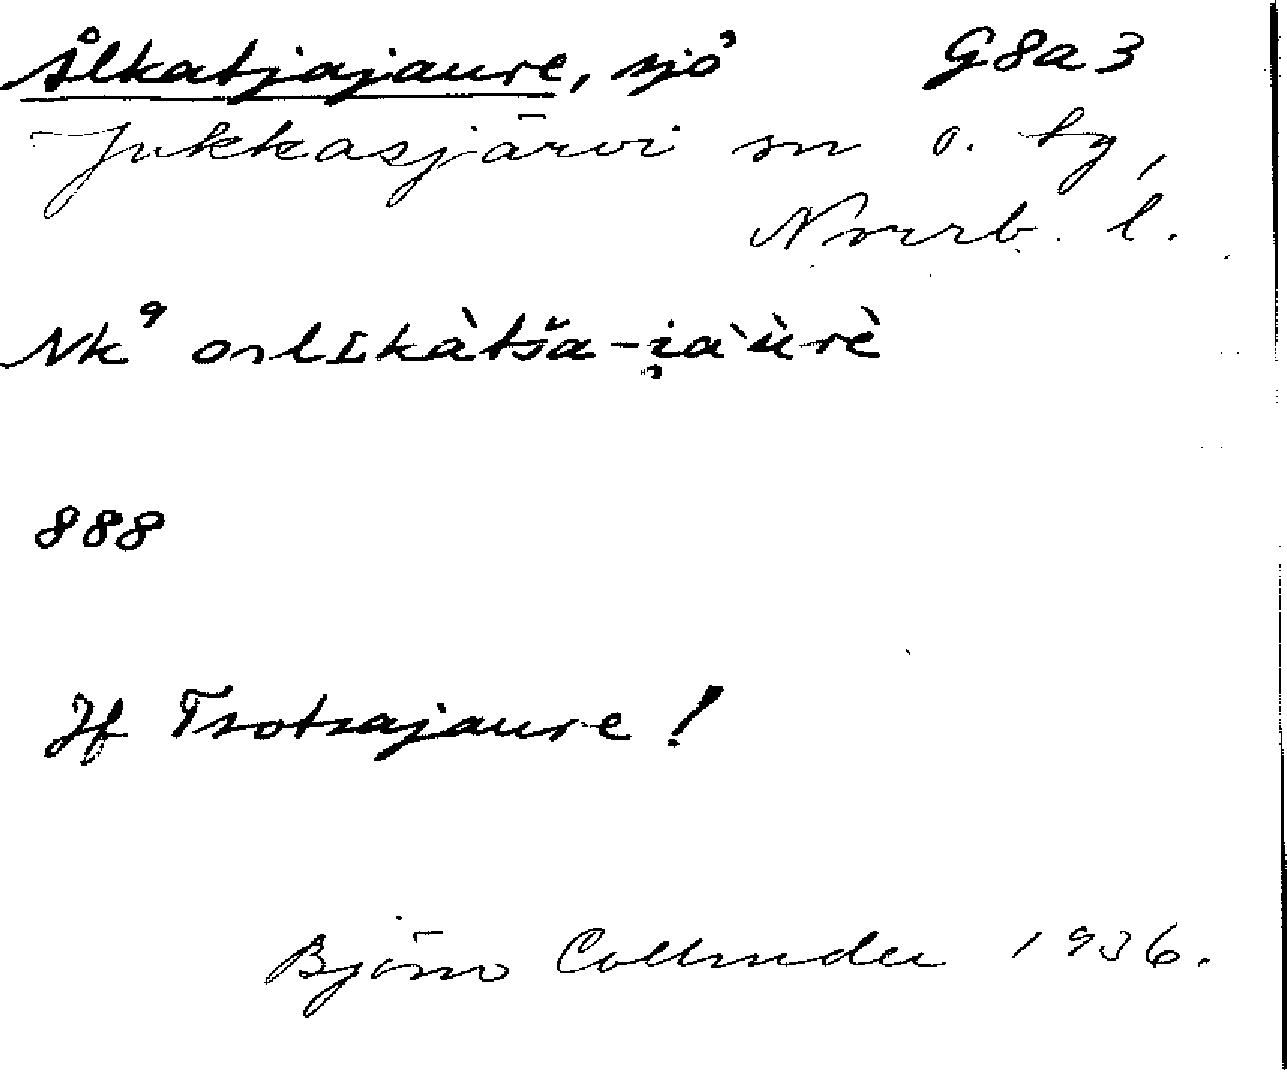 Ålkatjajaure, sjö G8a3
Jukkasjärvi sn o. tg,
Norrb. l.
Nk⁹ ọlıkàtša-i̯àùrè
888
Jf Tsotsajaure!
Björn Collinder 1936.